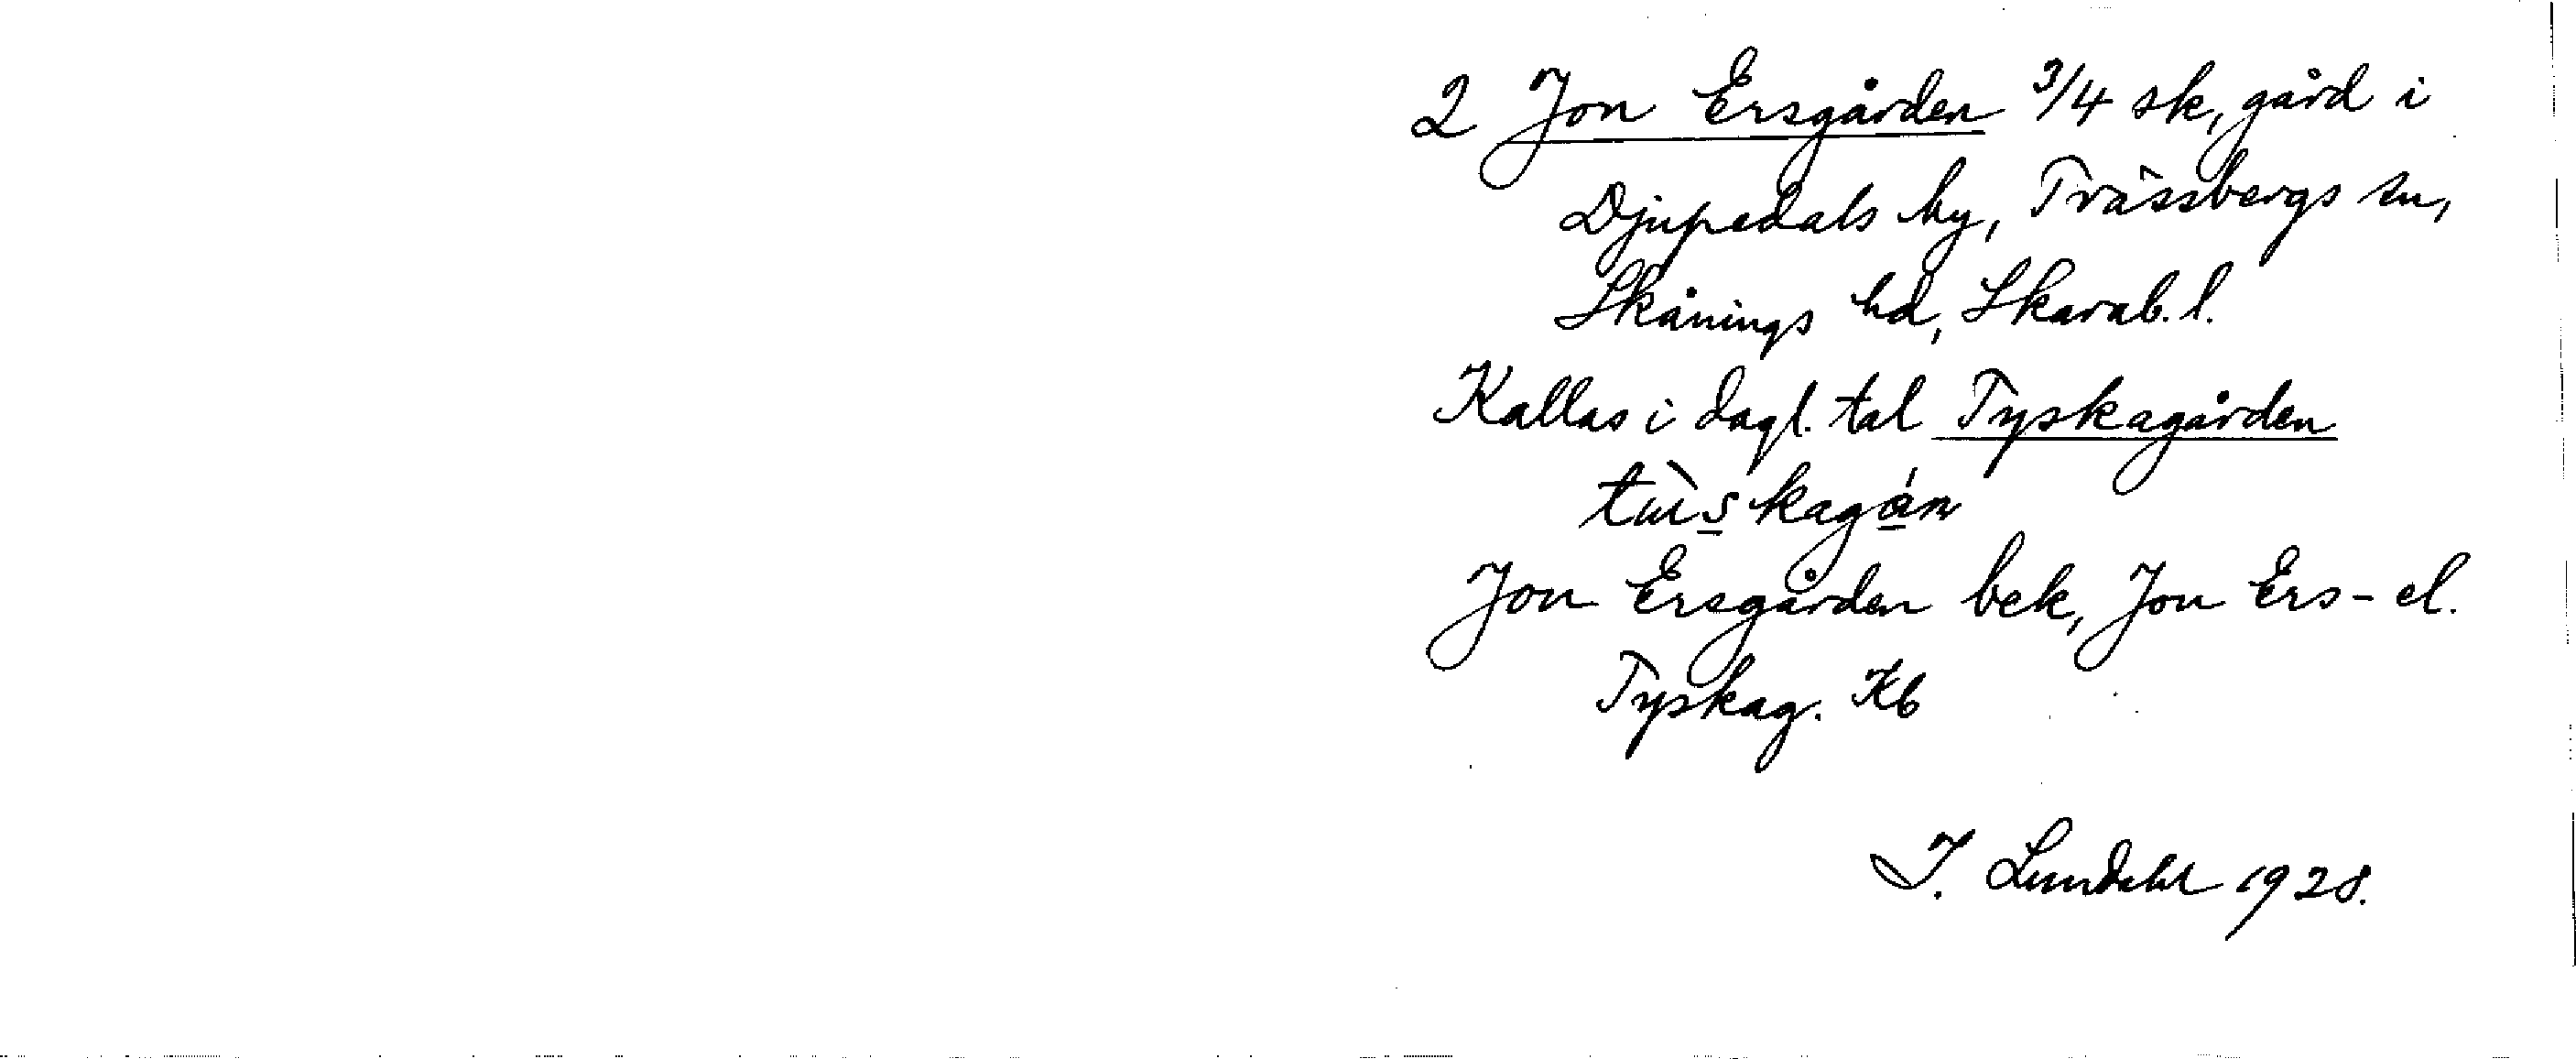 2 Jon Ersgården 3/4 sk, gård i
Djupedals by, Trässbergs sn,
Skånings hd, Skarab. l.
Kallas i dagl. tal Tyskagården
Jon Ersgården bek, Jon Ers- el.
Tyskag. Kb
I. Lundahl 1928.